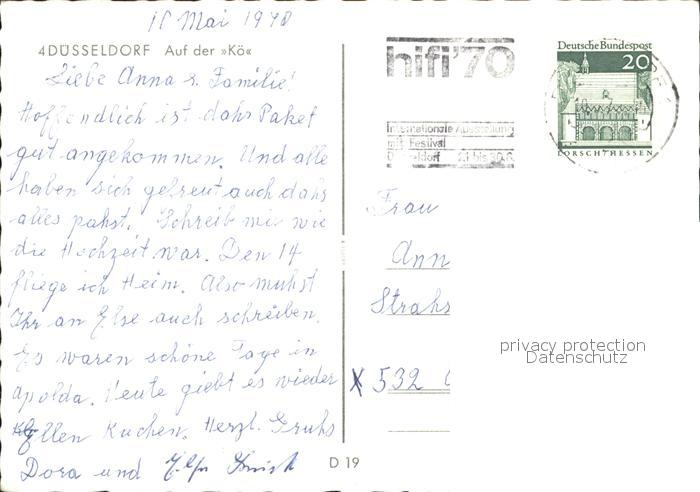 Mai
4DÜSSELDORF Auf der »Kö«
Liebe Anna & Familie!
Hoffendlich ist dahs Paket
gut angekommen. Und alle
haben sich gefreut auch dahs
alles pahst. Schreib mir wie
die Hochzeit war. Den 14
fliege ich Heim. Also muhst
Ihr an Else auch schreiben.
Es waren schöne Tage in
Apolda. Heute giebt es wieder
Kuchen. Herzl. Gruhs
Dora und
D 19
hifi'70
Internationale Ausstellung
mit Festival
Düsseldorf 21. bis 30.8.
Deutsche Bundespost
20
LORSCH/HESSEN
Frau
Ann
Strahs
X 532
privacy protection
Datenschutz